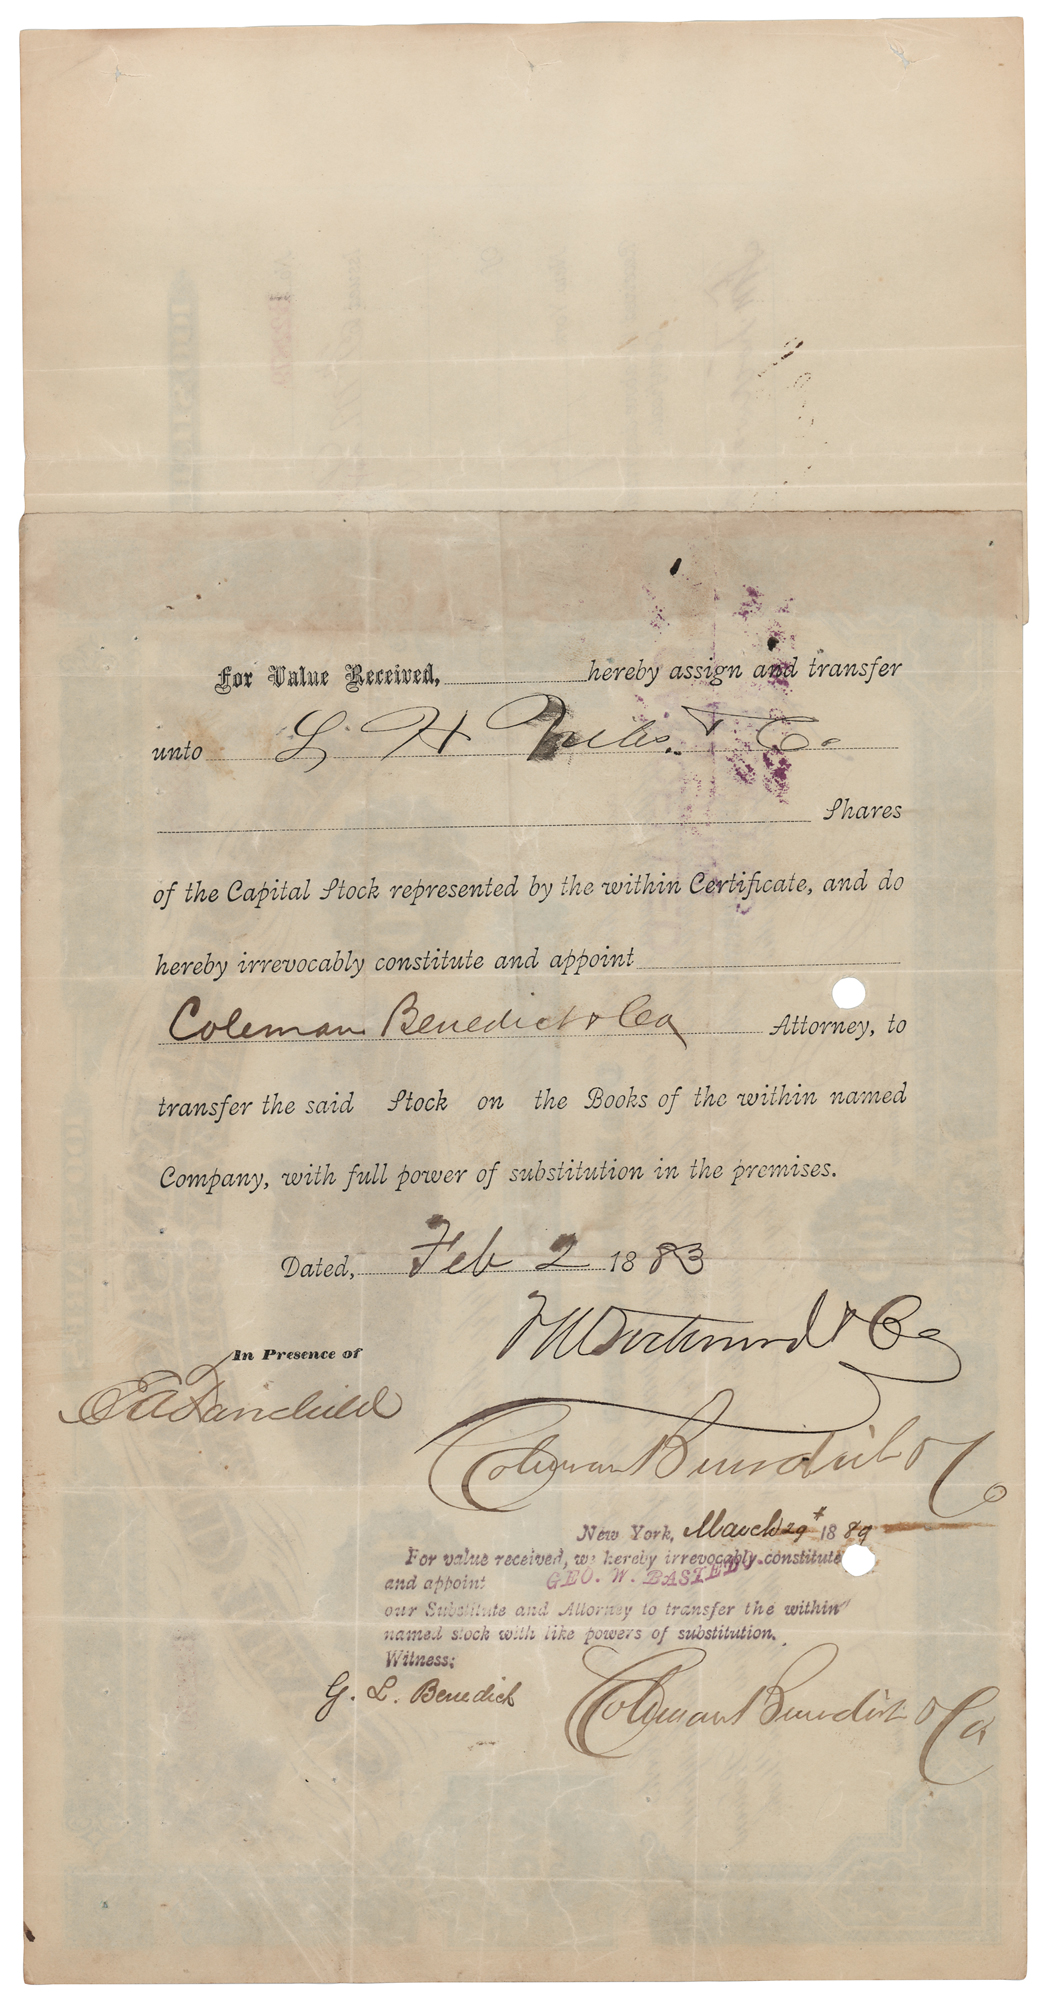 For Value Received, hereby assign and transfer
unto L H & Co.
Shares
of the Capital Stock represented by the within Certificate, and do
hereby irrevocably constitute and appoint
Coleman Benedict & Co Attorney, to
transfer the said Stock on the Books of the within named
Company, with full power of substitution in the premises.
Dated, Feb 2 1883
& Co
In Presence of
E A Fairchild
Coleman Benedict & Co
New York, March 29th 1889
For value received, we hereby irrevocably constitute
and appoint GEO. W.
our Substitute and Attorney to transfer the within
named stock with like powers of substitution.
Witness:
G. L. Benedict
Coleman Benedict & Co